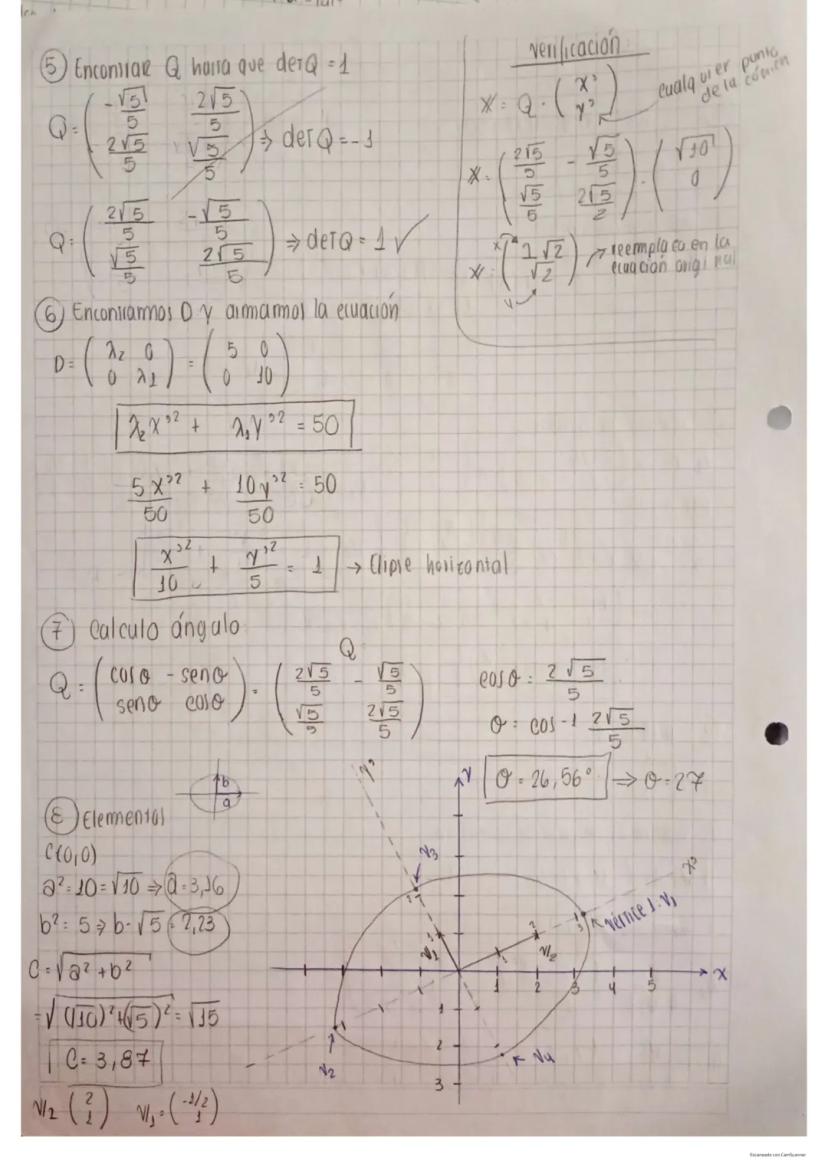 ⑤ Encontrar Q hasta que det Q = 1
Q = ( -√5/5 2√5/5
2√5/5 √5/5 ) ⇒ det Q = -1
Q = ( 2√5/5 -√5/5
√5/5 2√5/5 ) ⇒ det Q = 1 ✓
verificación
X = Q · ( x'
y' )
cualquier punto
de la cónica
X = ( 2√5/5 - √5/5
√5/5 2√5/2 ) · ( √10
0 )
X = ( 2√2
√2 ) → reemplazo en la
ecuación original
⑥ Encontramos D y armamos la ecuación
D = ( λ2 0
0 λ1 ) = ( 5 0
0 10 )
λ2 x'² + λ1 y'² = 50
5x'²/50 + 10y'²/50 = 50
x'²/10 + y'²/5 = 1 → Elipse horizontal
⑦ Calculo ángulo
Q = ( cosθ - senθ
senθ cosθ ) = ( 2√5/5 - √5/5
√5/5 2√5/5 )
Q
cosθ = 2√5/5
θ = cos-1 2√5/5
θ = 26,56° ⇒ θ = 27
b
a
⑧ Elementos
C(0,0)
a² = 10 = √10 ⇒ a = 3,16
b² = 5 ⇒ b = √5 = 2,23
C = √a² + b²
= √(√10)² + (√5)² = √15
C = 3,87
V2 ( 2
1 ) V1 = ( -1/2
1 )
y'
y
x'
V3
vértice 1 = V1
V1
V2
x
1 2 3 4 5
1
2
3
V2
V4
Escaneado con CamScanner